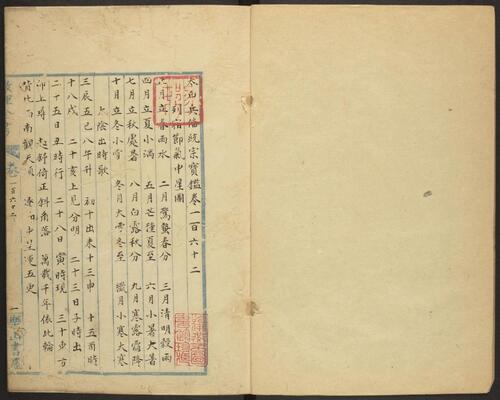 太白兵備統宗寶鑑卷一百六十二
列宿節氣中星圖
正月立春雨水　二月驚蟄春分　三月清明穀雨
四月立夏小滿　五月芒種夏至　六月小暑大暑
七月立秋處暑　八月白露秋分　九月寒露霜降
十月立冬小雪　冬月大雪冬至　臘月小寒大寒
太陰出時歌
三辰五巳八午升　初十出未十三申　十五酉時
十八戌　二十亥上見分明　二十三日子時出
二十五日丑時行　二十八日寅時現　三十步方
卯上尋　起舒倚正斜角落　萬載千年依此輪
背北面南觀天　五更
卷一百六十二　一